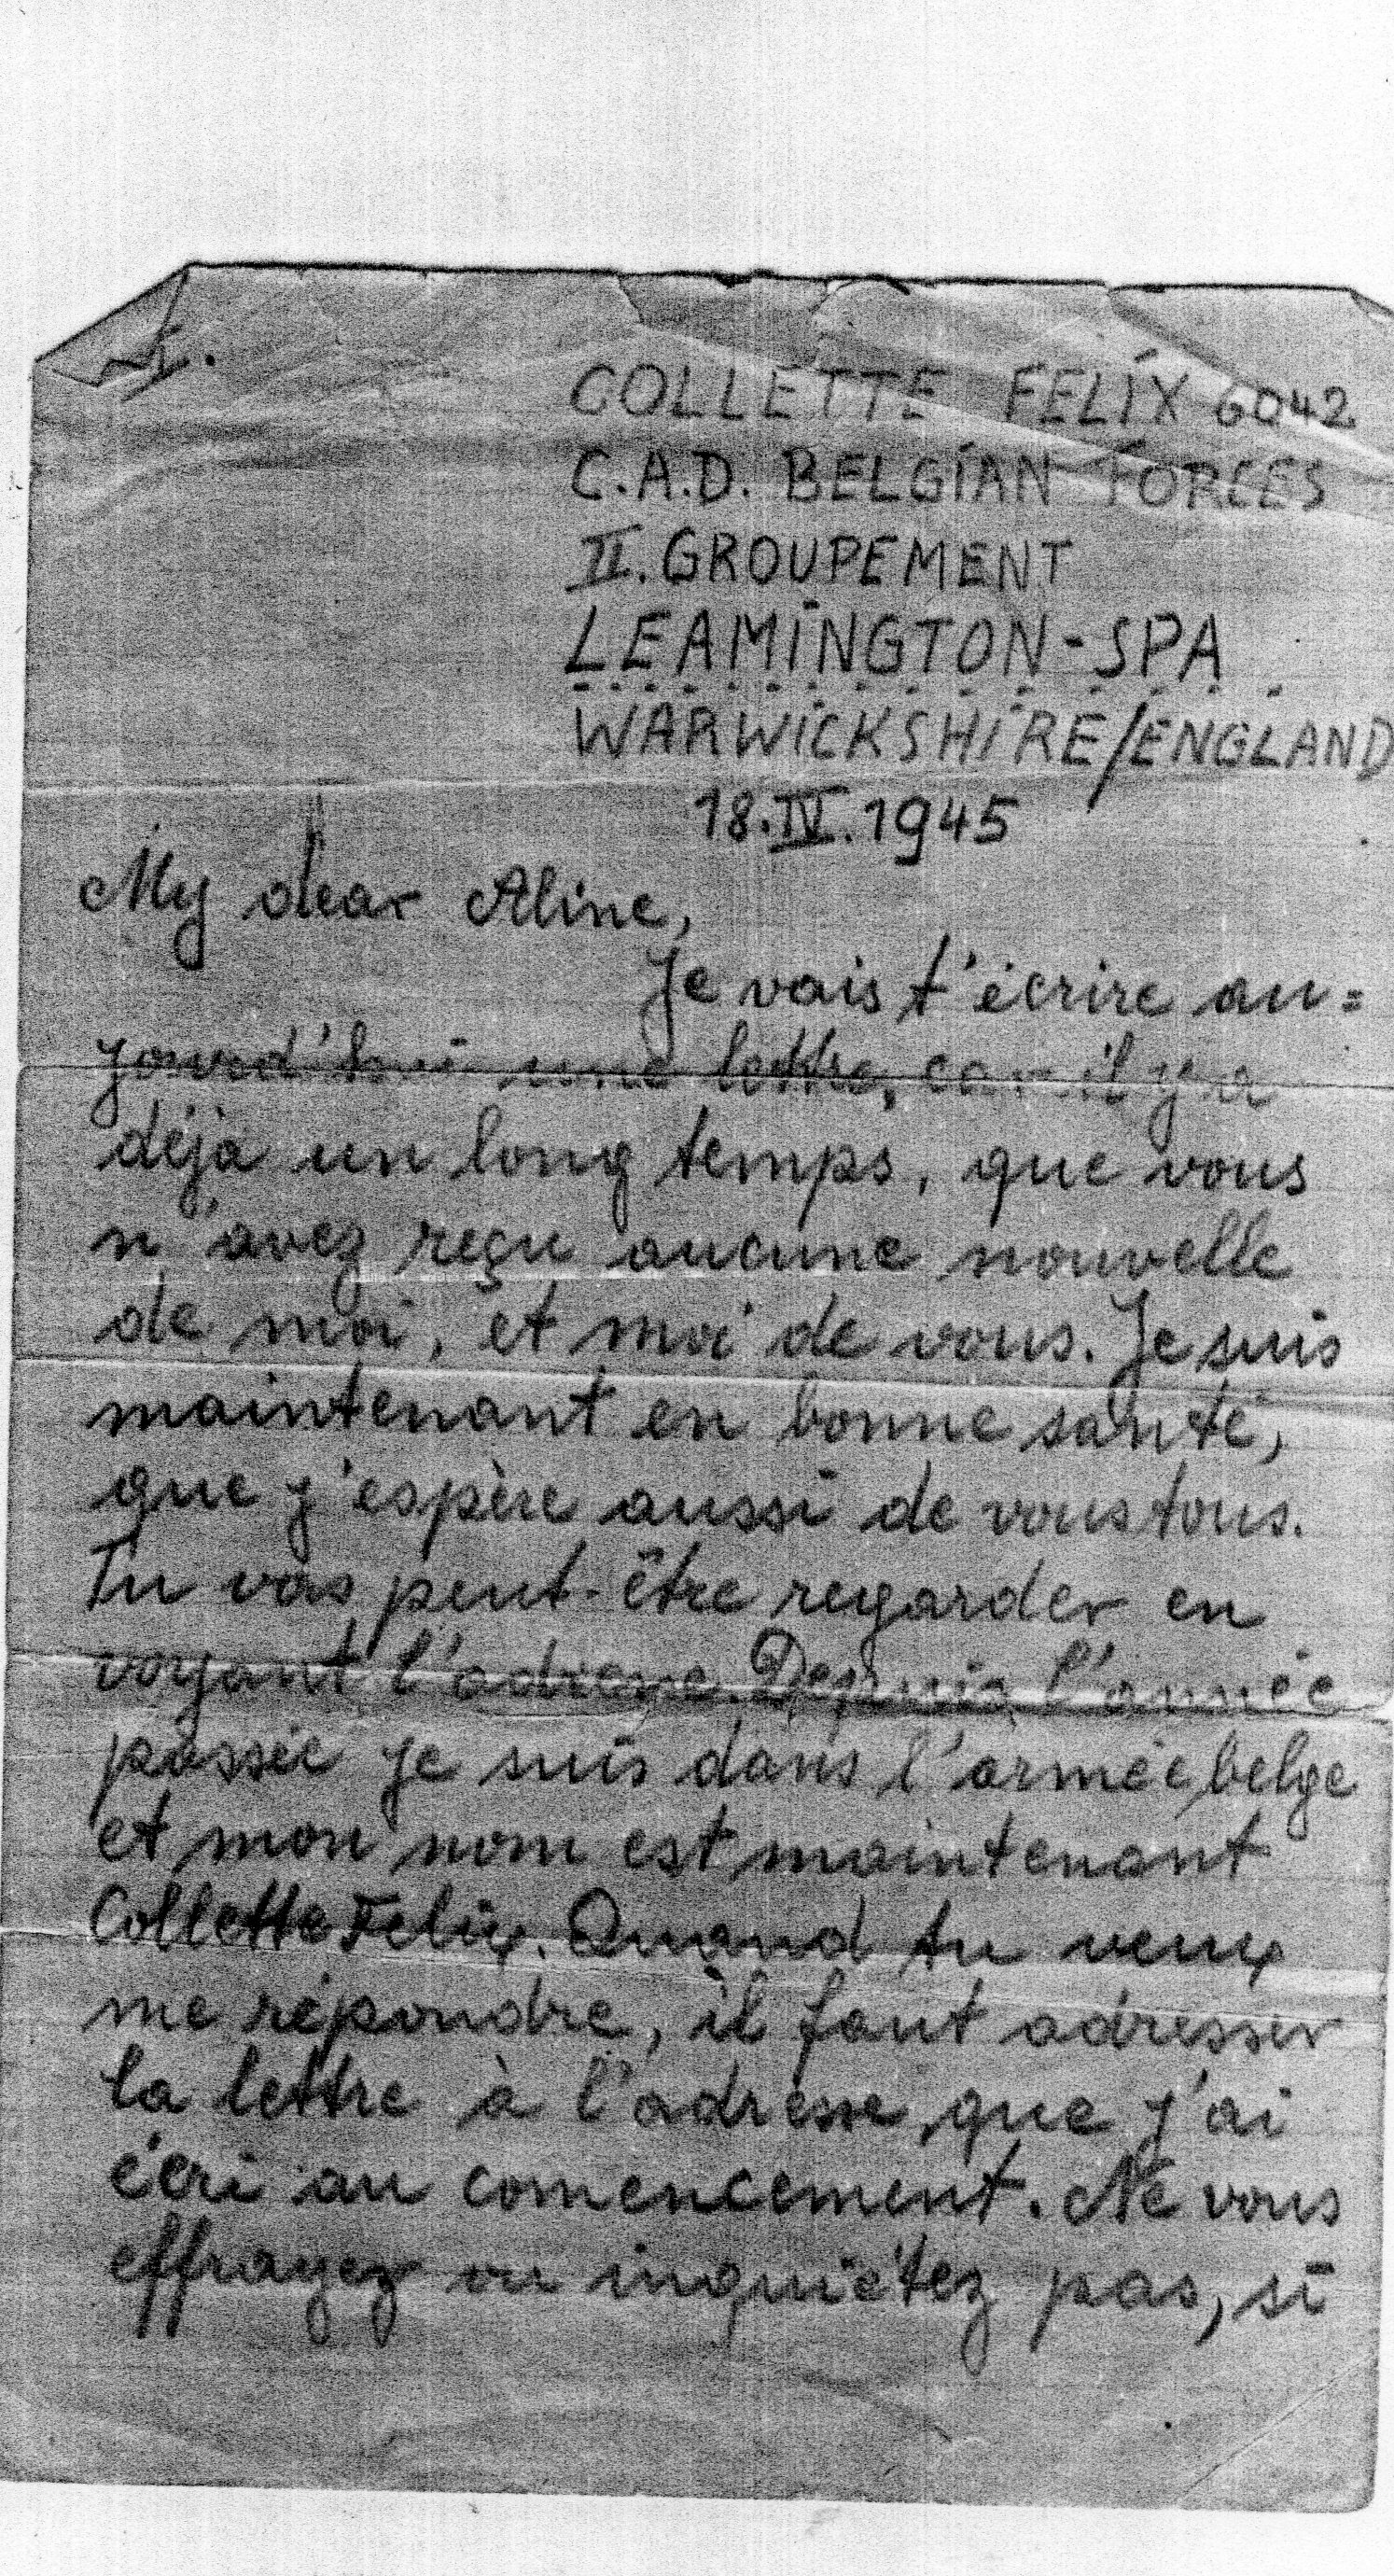 1.
COLLETTE FELIX 6042
C.A.D. BELGIAN FORCES
II. GROUPEMENT
LEAMINGTON-SPA
WARWICKSHIRE/ENGLAND
18.IV.1945
My dear Aline,
Je vais t'écrire au=
jourd'hui une lettre, car il y a
déjà un long temps, que vous
n'avez reçu aucune nouvelle
de moi, et moi de vous. Je suis
maintenant en bonne santé,
que j'espère aussi de vous tous.
Tu vas peut-être regarder en
voyant l'adresse. Depuis l'année
passée je suis dans l'armée belge
et mon nom est maintenant
Collette Felix. Quand tu veux
me répondre, il faut adresser
la lettre à l'adresse, que j'ai
écri au comencement. Ne vous
effrayez ou inquiétez pas, si